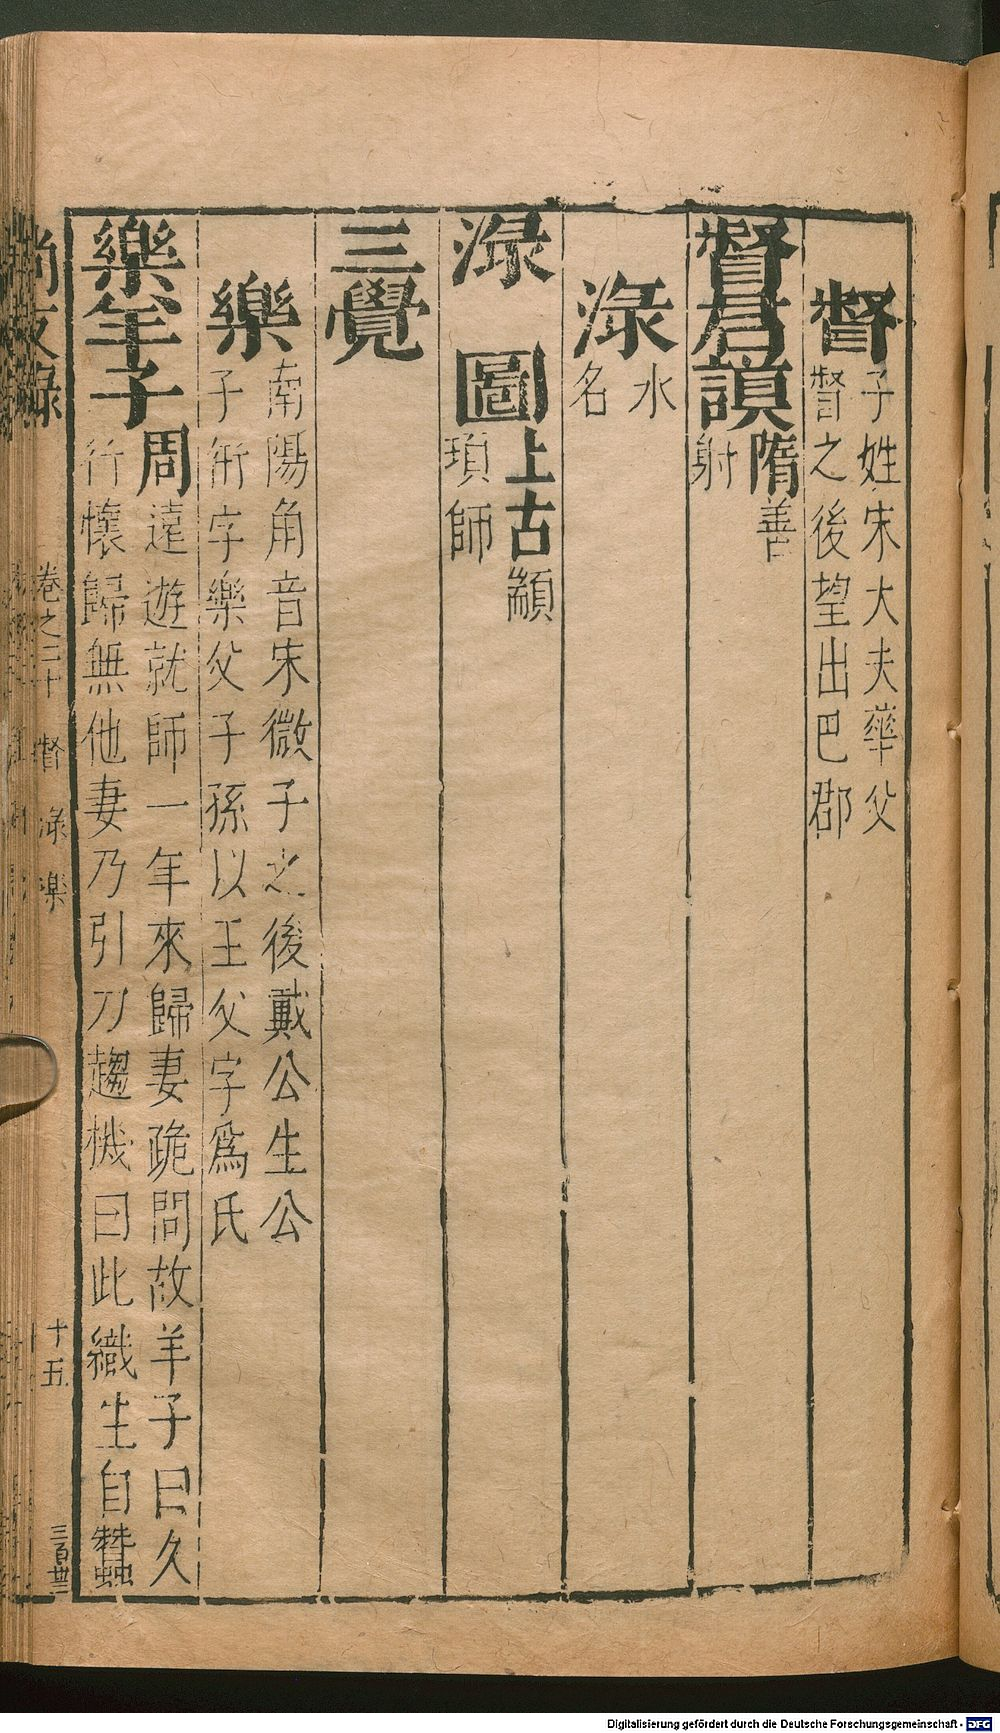 督 子姓宋大夫華父
督之後望出巴郡
督君謨 隋善
射
渌 水
名
渌圖 上古顓
頊師
三覺
樂 南陽角音宋微子之後戴公生公
子衎字樂父子孫以王父字爲氏
樂羊子 周遠遊就師一年來歸妻跪問故羊子曰久
行懷歸無他妻乃引刀趨機曰此織生自蠶
尚友録 卷之二十 督 渌 樂 十五 三百卅三
Digitalisierung gefördert durch die Deutsche Forschungsgemeinschaft - DFG